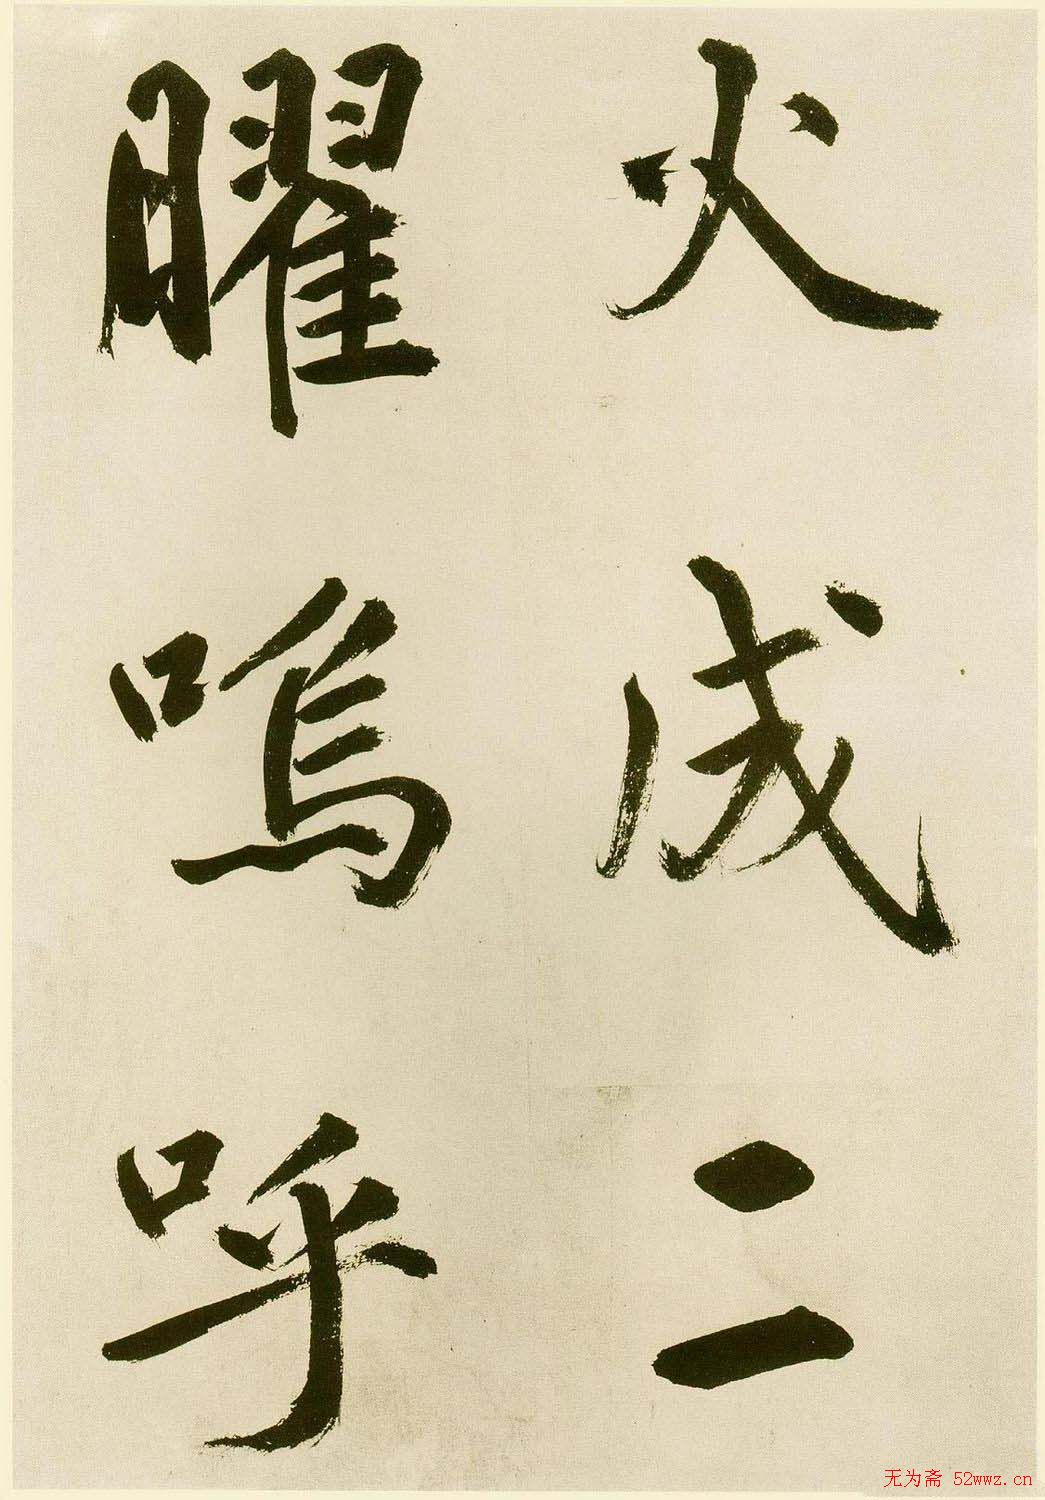 火成二
曜嗚呼
无为斋 52wwz.cn